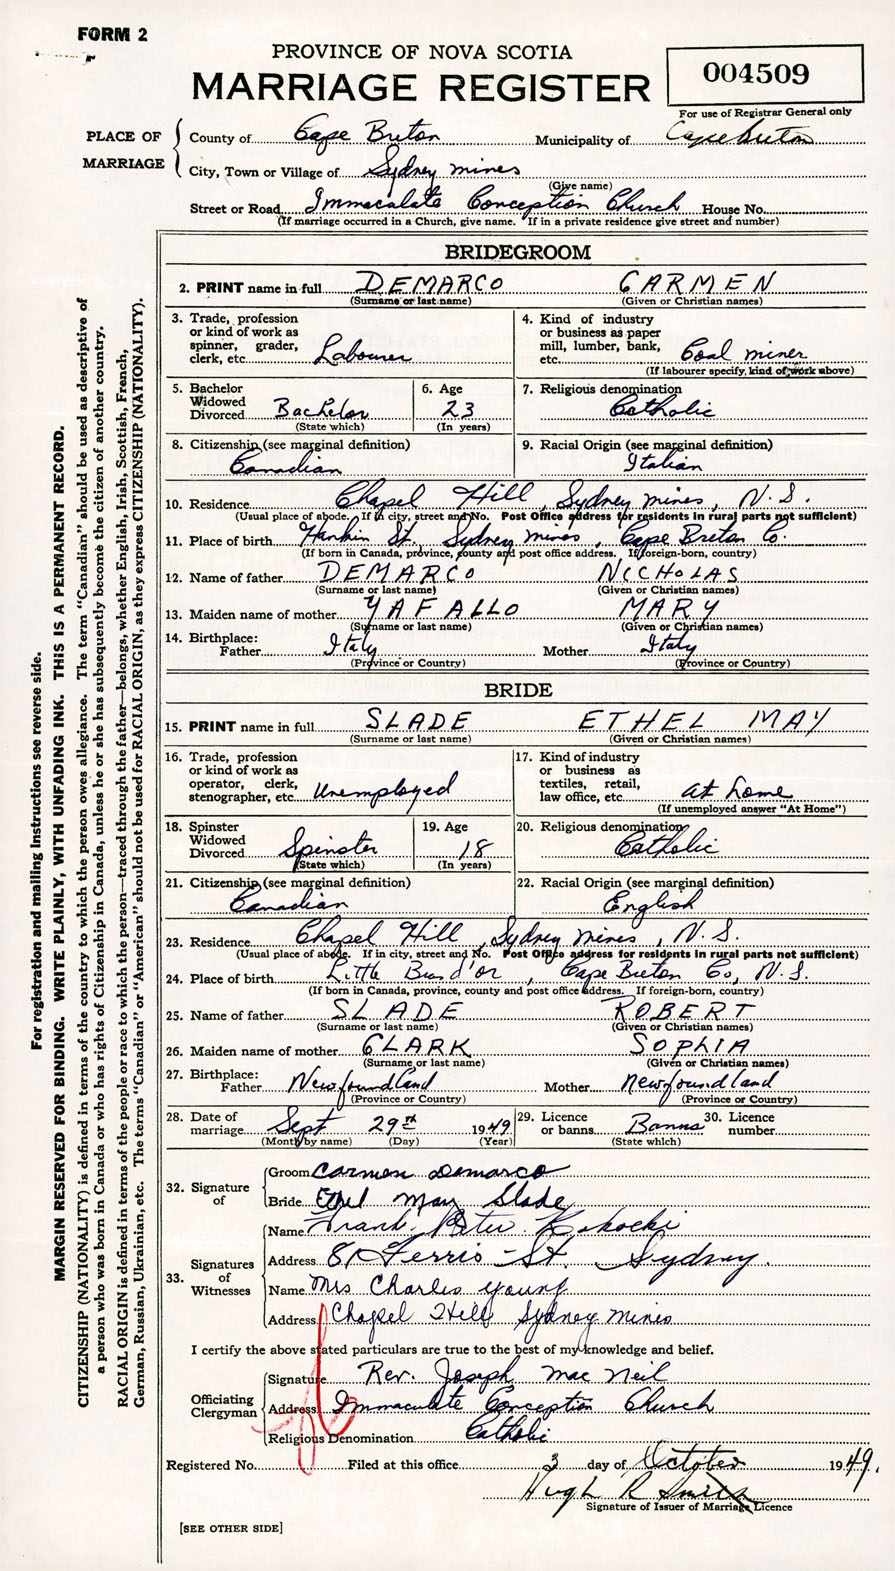 FORM 2
PROVINCE OF NOVA SCOTIA
MARRIAGE REGISTER
004509
For use of Registrar General only
PLACE OF MARRIAGE
County of Cape Breton Municipality of Cape Breton
City, Town or Village of Sydney mines
(Give name)
Street or Road Immaculate Conception Church House No.
(If marriage occurred in a Church, give name. If in a private residence give street and number)
BRIDEGROOM
2. PRINT name in full DEMARCO CARMEN
(Surname or last name) (Given or Christian names)
3. Trade, profession or kind of work as spinner, grader, clerk, etc. Labourer
4. Kind of industry or business as paper mill, lumber, bank, etc. Coal miner
(If labourer specify, kind of work above)
5. Bachelor Widowed Divorced Bachelor
(State which)
6. Age 23
(In years)
7. Religious denomination
Catholic
8. Citizenship (see marginal definition)
Canadian
9. Racial Origin (see marginal definition)
Italian
10. Residence Chapel Hill, Sydney mines, N. S.
(Usual place of abode. If in city, street and No. Post Office address for residents in rural parts not sufficient)
11. Place of birth Hankin St. Sydney mines, Cape Breton Co.
(If born in Canada, province, county and post office address. If foreign-born, country)
12. Name of father DEMARCO NICCHOLAS
(Surname or last name) (Given or Christian names)
13. Maiden name of mother YAFALLO MARY
(Surname or last name) (Given or Christian names)
14. Birthplace:
Father Italy Mother Italy
(Province or Country) (Province or Country)
BRIDE
15. PRINT name in full SLADE ETHEL MAY
(Surname or last name) (Given or Christian names)
16. Trade, profession or kind of work as operator, clerk, stenographer, etc. Unemployed
17. Kind of industry or business as textiles, retail, law office, etc. at home
(If unemployed answer "At Home")
18. Spinster Widowed Divorced Spinster
(State which)
19. Age 18
(In years)
20. Religious denomination
Catholic
21. Citizenship (see marginal definition)
Canadian
22. Racial Origin (see marginal definition)
English
23. Residence Chapel Hill, Sydney mines, N. S.
(Usual place of abode. If in city, street and No. Post Office address for residents in rural parts not sufficient)
24. Place of birth Little Bras d'or, Cape Breton Co, N. S.
(If born in Canada, province, county and post office address. If foreign-born, country)
25. Name of father SLADE ROBERT
(Surname or last name) (Given or Christian names)
26. Maiden name of mother CLARK SOPHIA
(Surname or last name) (Given or Christian names)
27. Birthplace:
Father Newfoundland Mother Newfoundland
(Province or Country) (Province or Country)
28. Date of marriage Sept 29th 1949
(Month by name) (Day) (Year)
29. Licence or banns Banns
(State which)
30. Licence number
32. Signature of
Groom Carmen Demarco
Bride Ethel May Slade
33. Signatures of Witnesses
Name Frank Peter
Address 81 Ferris St. Sydney.
Name Mrs Charles Young
Address Chapel Hill Sydney mines
I certify the above stated particulars are true to the best of my knowledge and belief.
Officiating Clergyman
Signature Rev. Joseph Mac Neil
Address Immaculate Conception Church
Religious Denomination Catholic
Registered No. Filed at this office 3 day of October 1949.
Hugh R Smith
Signature of Issuer of Marriage Licence
[SEE OTHER SIDE]
For registration and mailing instructions see reverse side.
MARGIN RESERVED FOR BINDING. WRITE PLAINLY, WITH UNFADING INK. THIS IS A PERMANENT RECORD.
CITIZENSHIP (NATIONALITY) is defined in terms of the country to which the person owes allegiance. The term "Canadian" should be used as descriptive of
a person who was born in Canada or who has rights of Citizenship in Canada, unless he or she has subsequently become the citizen of another country.
RACIAL ORIGIN is defined in terms of the people or race to which the person—traced through the father—belongs, whether English, Irish, Scottish, French,
German, Russian, Ukrainian, etc. The terms "Canadian" or "American" should not be used for RACIAL ORIGIN, as they express CITIZENSHIP (NATIONALITY).